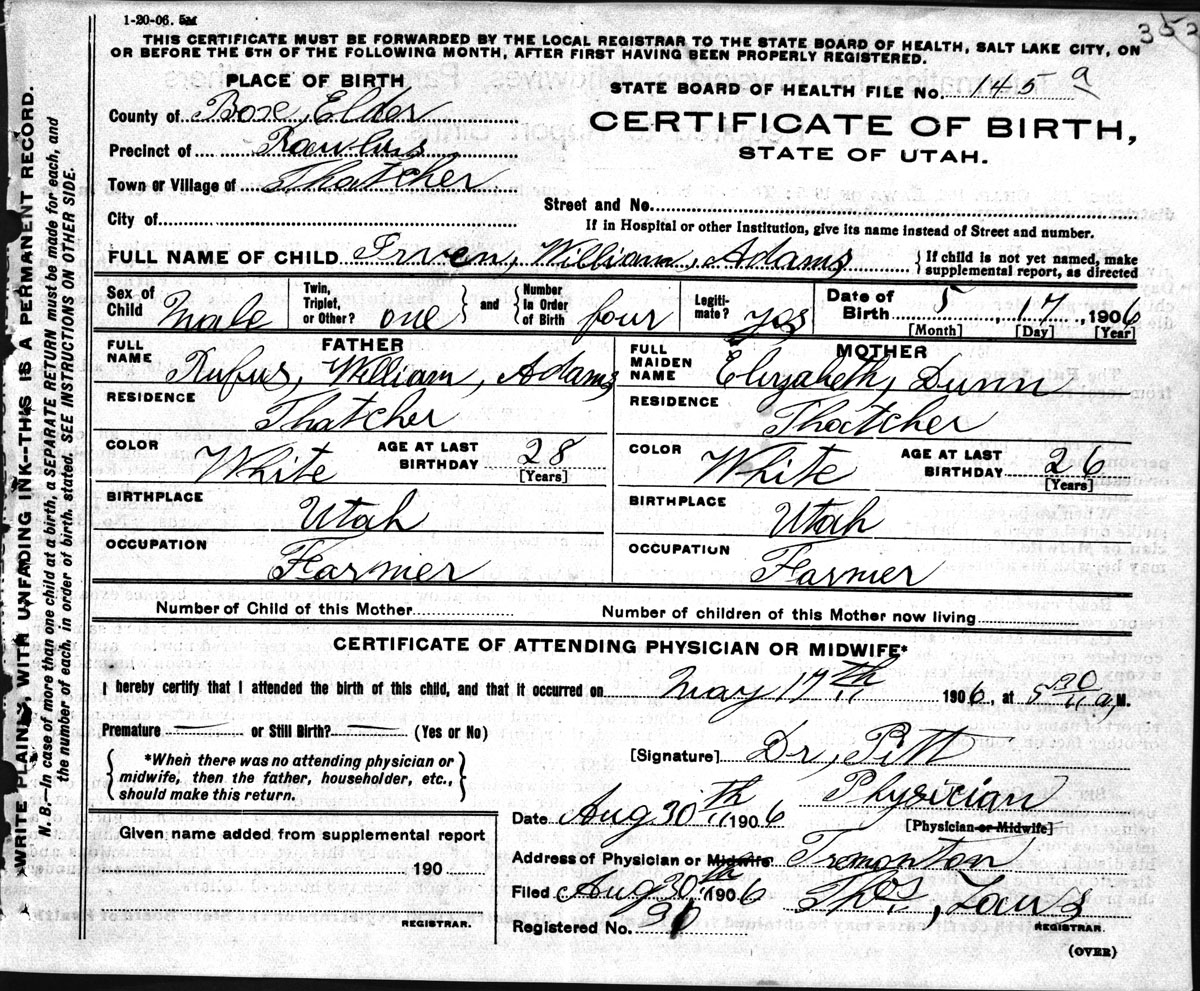 1-20-06. 5M
352
THIS CERTIFICATE MUST BE FORWARDED BY THE LOCAL REGISTRAR TO THE STATE BOARD OF HEALTH, SALT LAKE CITY, ON
OR BEFORE THE 5TH OF THE FOLLOWING MONTH, AFTER FIRST HAVING BEEN PROPERLY REGISTERED.
PLACE OF BIRTH
STATE BOARD OF HEALTH FILE No. 145 a
County of Box Elder
CERTIFICATE OF BIRTH,
STATE OF UTAH.
Precinct of Rawlins
Town or Village of Thatcher
Street and No.
City of
If in Hospital or other Institution, give its name instead of Street and number.
FULL NAME OF CHILD Irven, William, Adams { If child is not yet named, make supplemental report, as directed
Sex of Child Male Twin, Triplet, or Other? one } and { Number In Order of Birth four Legiti- mate? yes Date of Birth 5, 17, 1906
[Month] [Day] [Year]
FATHER
FULL NAME Rufus, William, Adams
RESIDENCE Thatcher
COLOR White AGE AT LAST BIRTHDAY 28 [Years]
BIRTHPLACE Utah
OCCUPATION Farmer
MOTHER
FULL MAIDEN NAME Elizabeth, Dunn
RESIDENCE Thatcher
COLOR White AGE AT LAST BIRTHDAY 26 [Years]
BIRTHPLACE Utah
OCCUPATION Farmer
Number of Child of this Mother
Number of children of this Mother now living
CERTIFICATE OF ATTENDING PHYSICIAN OR MIDWIFE*
I hereby certify that I attended the birth of this child, and that it occurred on May 17th 1906, at 5 30 a, M.
Premature — or Still Birth? — (Yes or No)
[Signature] Dr, Pitt
{ *When there was no attending physician or
midwife, then the father, householder, etc.,
should make this return. }
Date Aug 30th 1906 Physician
[Physician or Midwife]
Address of Physician or Midwife Tremonton
Filed Aug 30th 1906 Thos,
Registered No. 30
REGISTRAR.
Given name added from supplemental report
190
REGISTRAR.
(OVER)
WRITE PLAINLY, WITH UNFADING INK--THIS IS A PERMANENT RECORD.
N. B.—In case of more than one child at a birth, a SEPARATE RETURN must be made for each, and
the number of each, in order of birth, stated. SEE INSTRUCTIONS ON OTHER SIDE.